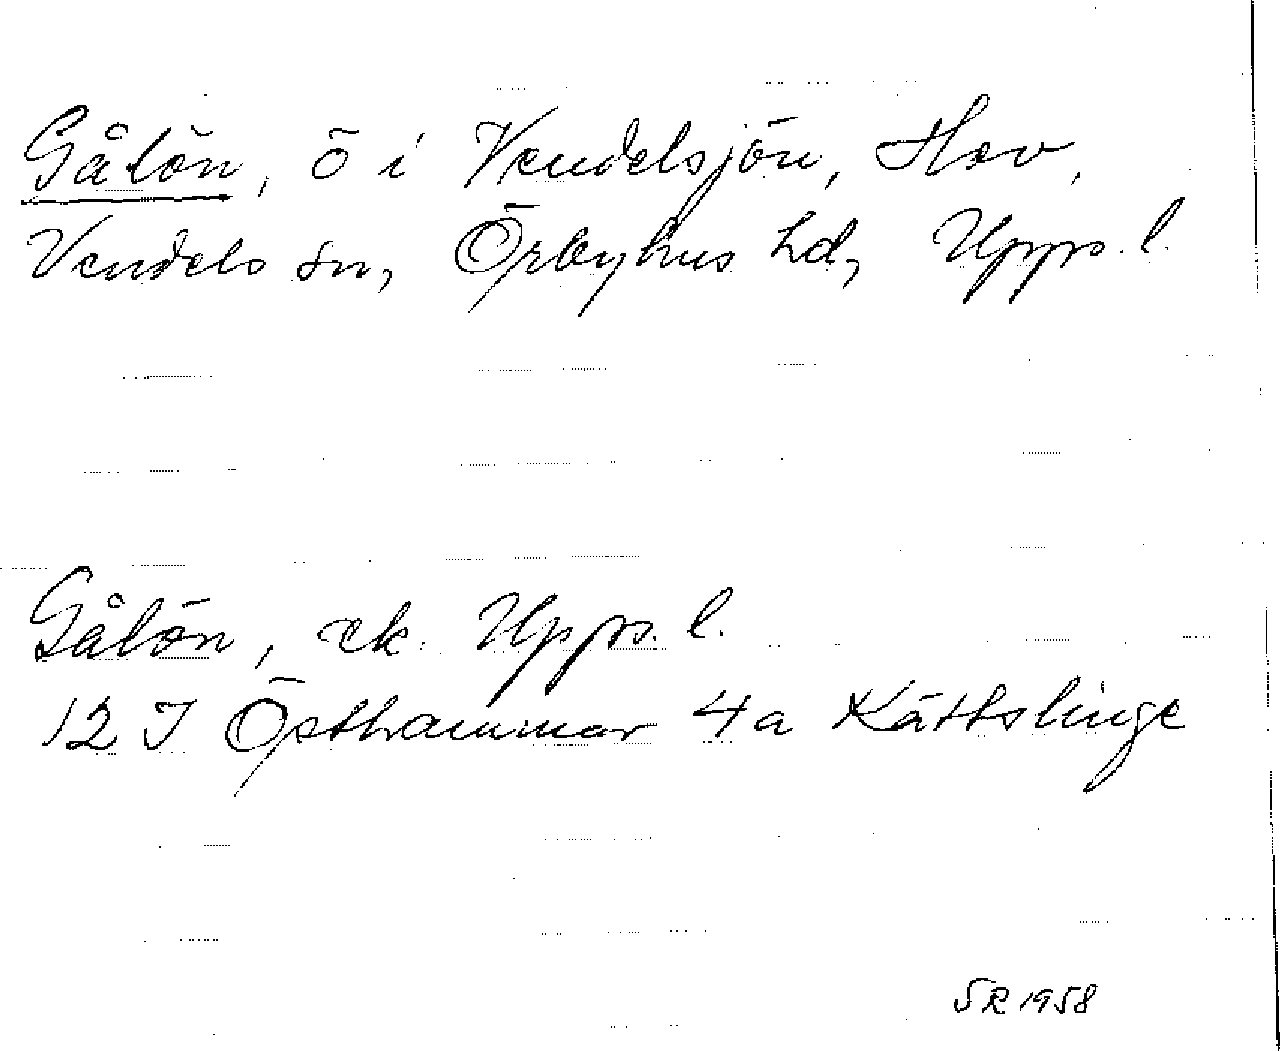 Gåtön, ö i Vendelsjön, Hov,
Vendels sn, Örbyhus hd, Upps. l.
Gåtön, ek. Upps. l.
12 I Östhammar 4a Kättslinge
SR 1958